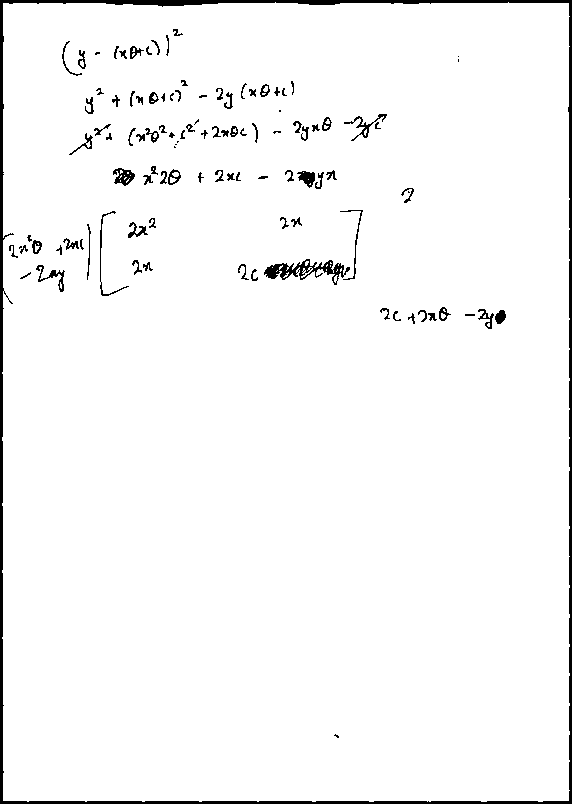 (y - (xθ+c))²
y² + (xθ+c)² - 2y(xθ+c)
y² + (x²θ² + c² + 2xθc) - 2yxθ - 2yc
x²2θ + 2xc - 2yx
2
2x²θ + 2xc
- 2xy
2x² 2x
2x 2c
2c + 2xθ - 2y